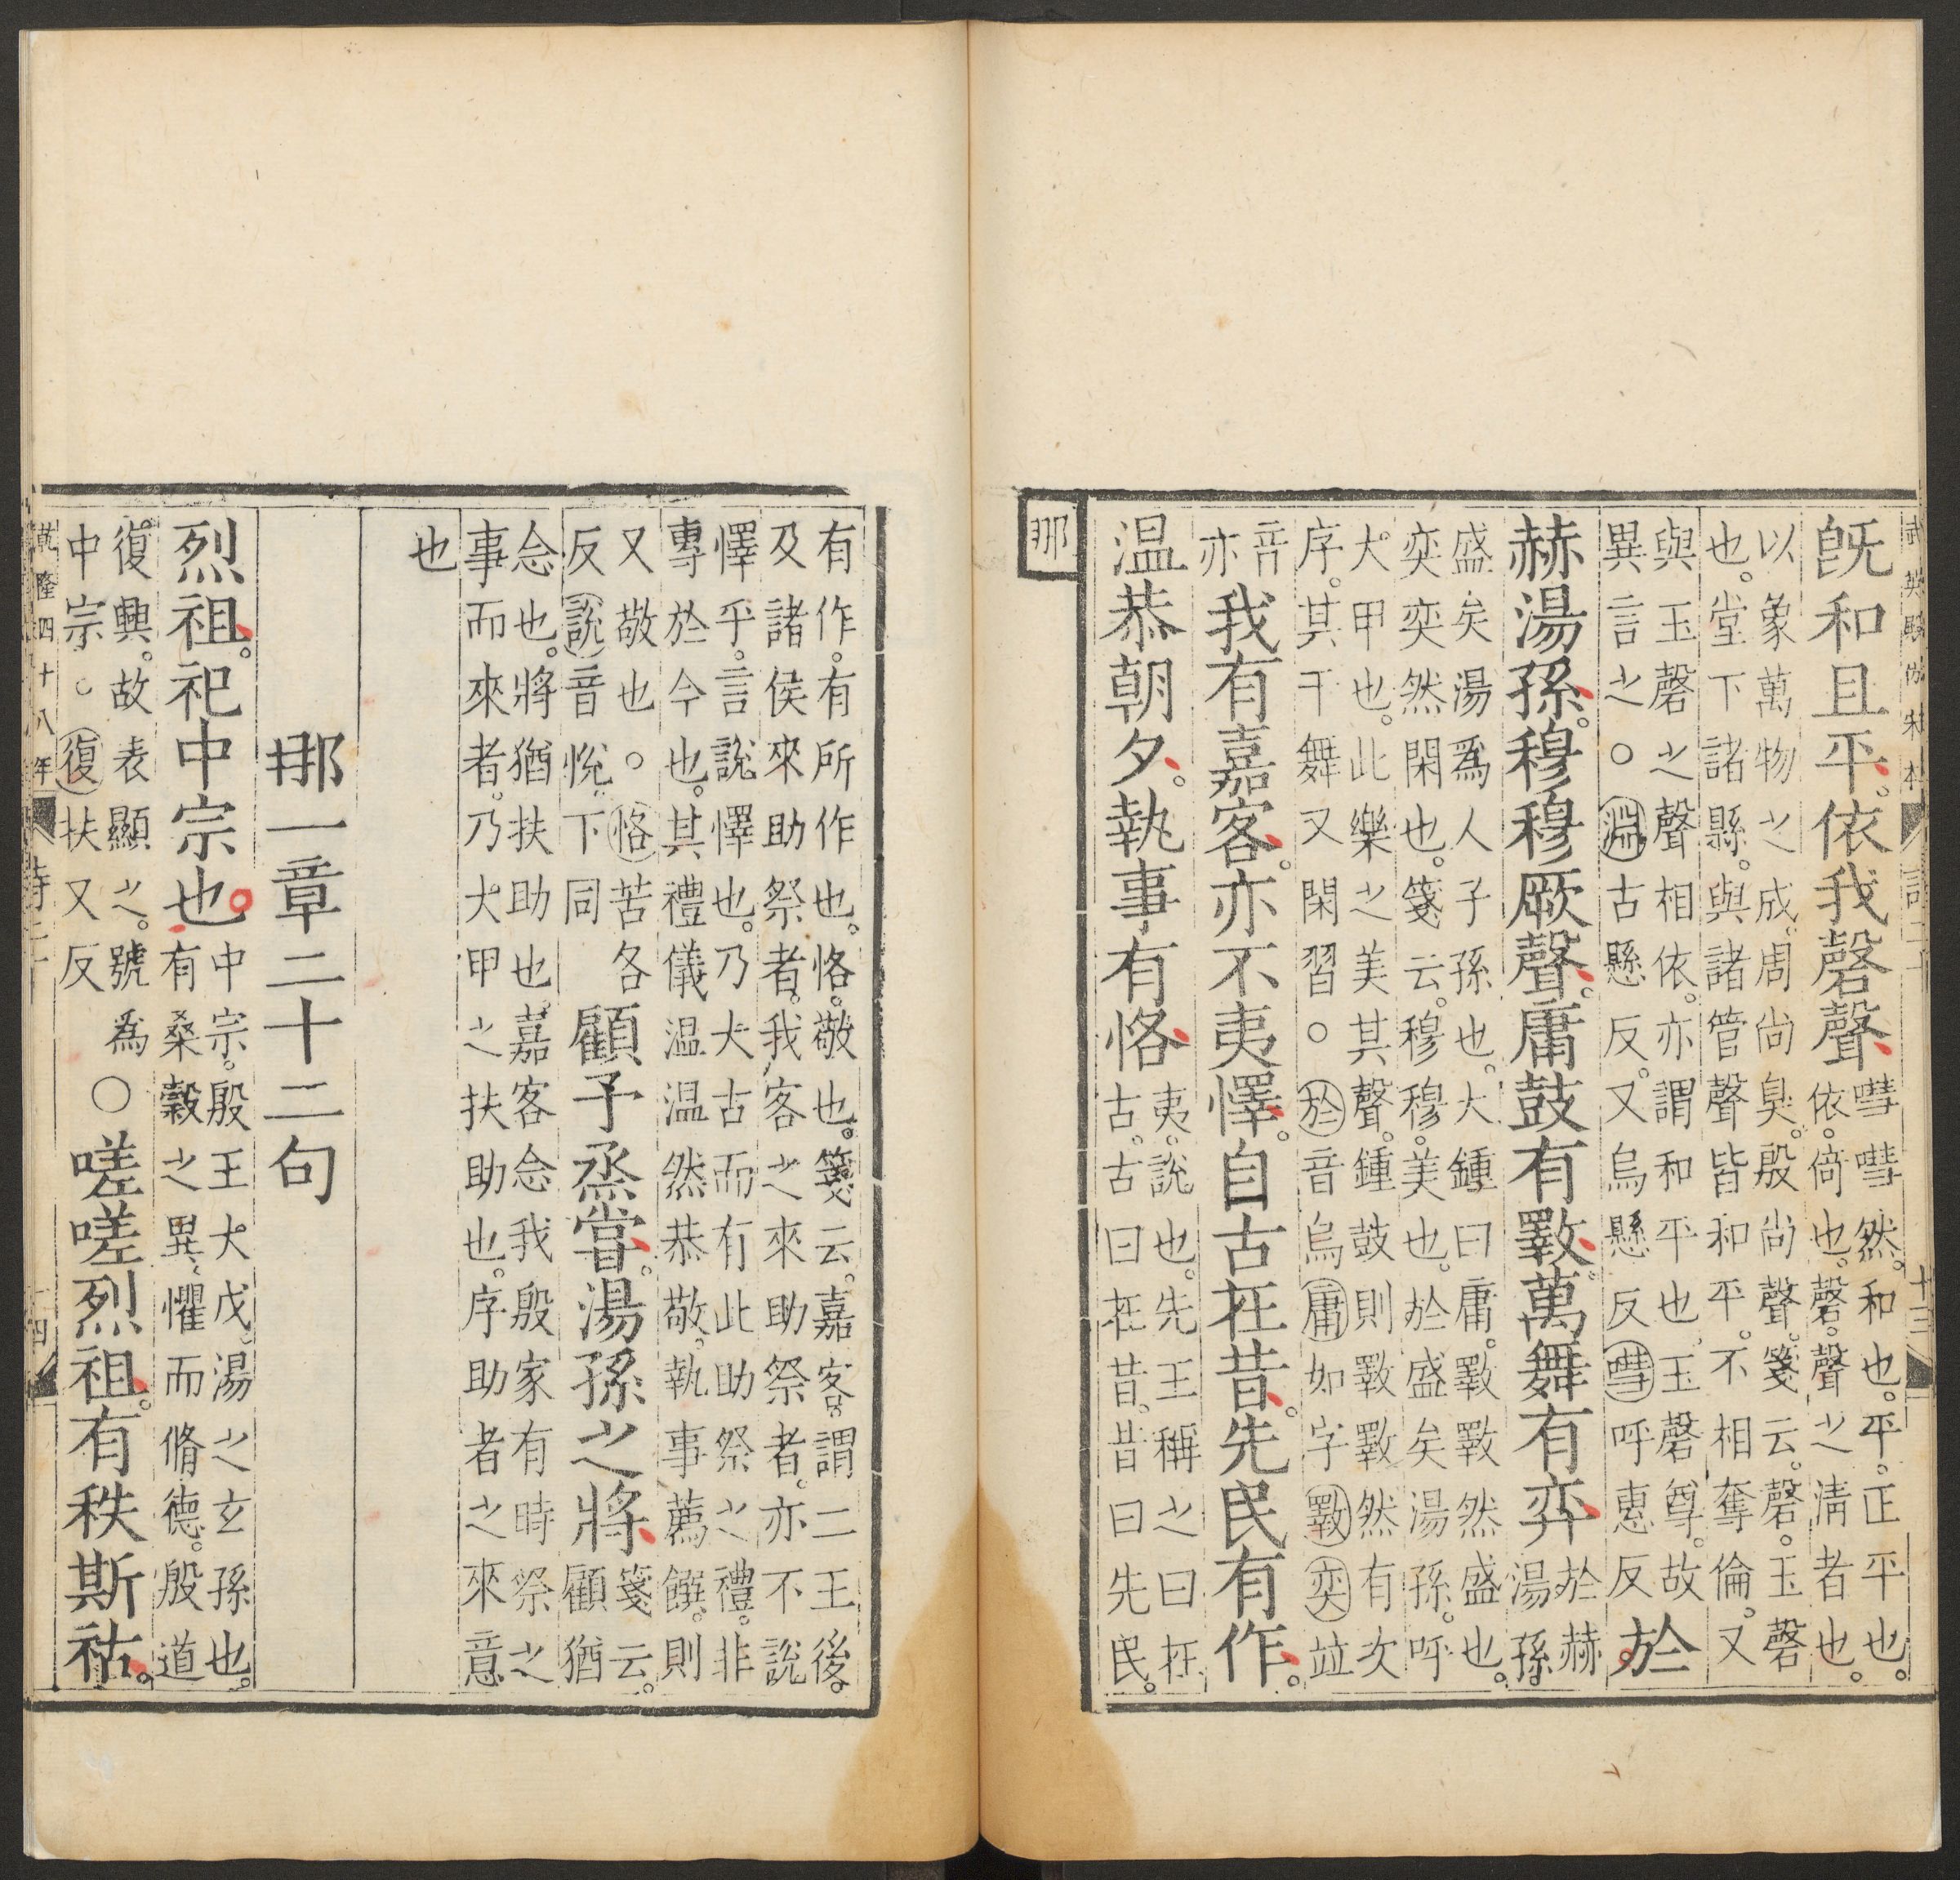 武英殿仿宋本　詩二十　十三
旣和且平。依我磬聲
嘒嘒然。和也。平。正平也。
依。倚也。磬。聲之淸者也。
以象萬物之成。周尚臭。殷尚聲。箋云。磬。玉磬
也。堂下諸縣。與諸管聲皆和平。不相奪倫。又
與玉磬之聲相依。亦謂和平也。玉磬尊。故
異言之○淵古懸反。又烏懸反嘒呼惠反
於
赫湯孫。穆穆厥聲。庸鼓有斁。萬舞有奕
於赫
湯孫
盛矣湯爲人子孫也。大鍾曰庸。斁斁然盛也。
奕奕然閑也。箋云。穆穆。美也。於盛矣湯孫。呼
大甲也。此樂之美其聲。鍾鼓則斁斁然有次
序。其干舞又閑習○於音烏庸如字斁奕竝
音
亦
我有嘉客。亦不夷懌。自古在昔。先民有作。
温恭朝夕。執事有恪
夷。說也。先王稱之曰在
古。古曰在昔。昔曰先民。
那
有作。有所作也。恪。敬也。箋云。嘉客。謂二王後。
及諸侯來助祭者。我客之來助祭者。亦不說
懌乎。言說懌也。乃大古而有此助祭之禮。非
專於今也。其禮儀温温然恭敬。執事薦饌。則
又敬也○恪苦各
反說音悅。下同
顧予烝嘗。湯孫之將
箋云。
顧猶
念也。將猶扶助也。嘉客念我殷家有時祭之
事而來者。乃大甲之扶助也。序助者之來意
也
那一章二十二句
烈祖。祀中宗也
中宗。殷王大戊。湯之玄孫也。
有桑榖之異。懼而脩德。殷道
復興。故表顯之。號爲
中宗。○復扶又反
○嗟嗟烈祖。有秩斯祜。
乾隆四十八年　詩二十　十四